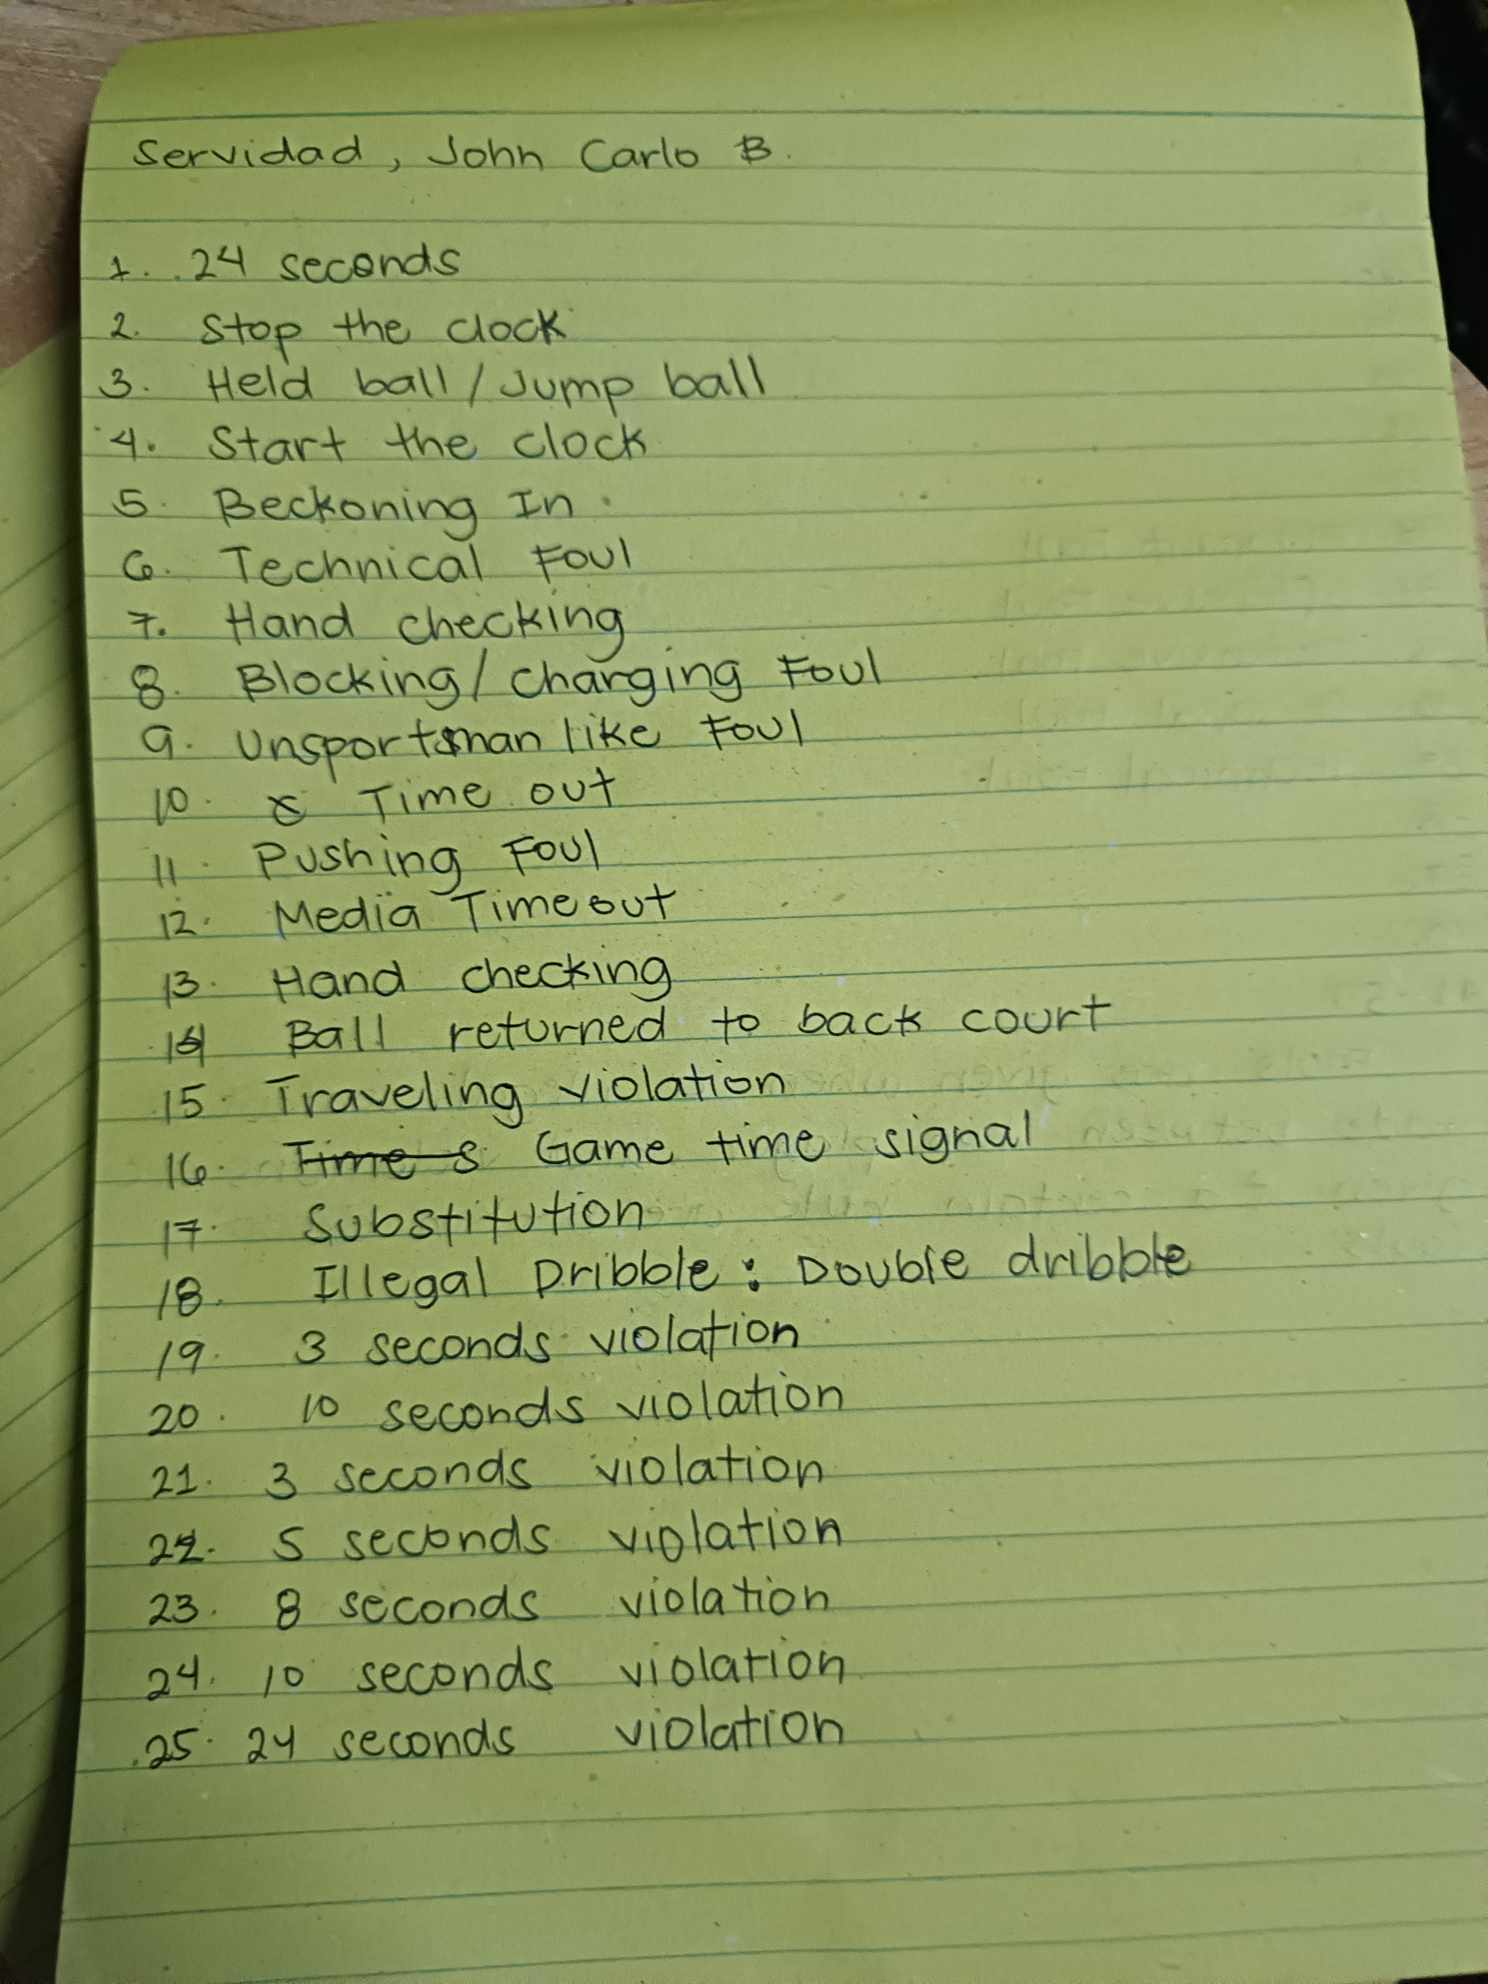 Servidad, John Carlo B.
1. 24 seconds
2. Stop the clock
3. Held ball / Jump ball
4. Start the clock
5. Beckoning In
6. Technical Foul
7. Hand checking
8. Blocking / charging Foul
9. Unsportsman like Foul
10. Time out
11. Pushing Foul
12. Media Timeout
13. Hand checking
14 Ball returned to back court
15. Traveling violation
16. Time s Game time signal
17. Substitution
18. Illegal Dribble : Double dribble
19. 3 seconds violation
20. 10 seconds violation
21. 3 seconds violation
22. 5 seconds violation
23. 8 seconds violation
24. 10 seconds violation
25. 24 seconds violation